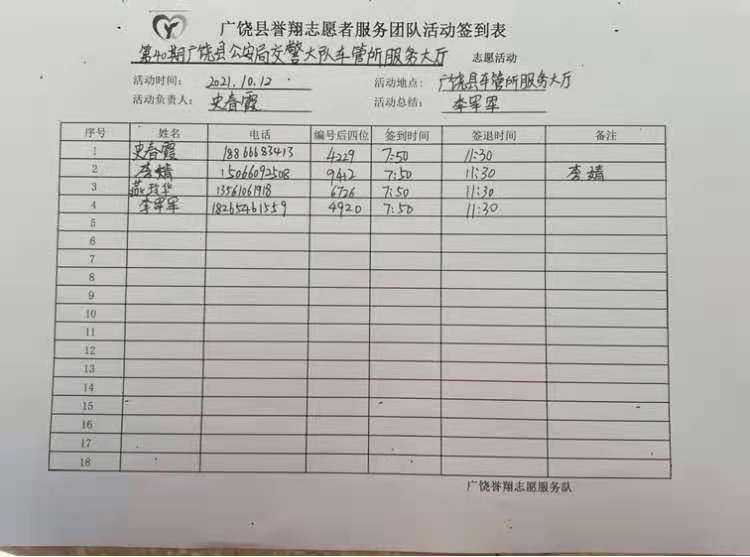 广饶县誉翔志愿者服务团队活动签到表
第40期广饶县公安局交警大队车管所服务大厅 志愿活动
活动时间： 2021.10.12 活动地点： 广饶县车管所服务大厅
活动负责人： 史春霞 活动总结： 李军军
序号 姓名 电话 编号后四位 签到时间 签退时间 备注
1 史春霞 18866683413 4229 7:50 11:30
2 李婧 15066092508 9412 7:50 11:30 李婧
3 13561061918 6726 7:50 11:30
4 李军军 18265461559 4920 7:50 11:30
5
6
7
8
9
10
11
12
13
14
15
16
17
18
广饶誉翔志愿服务队